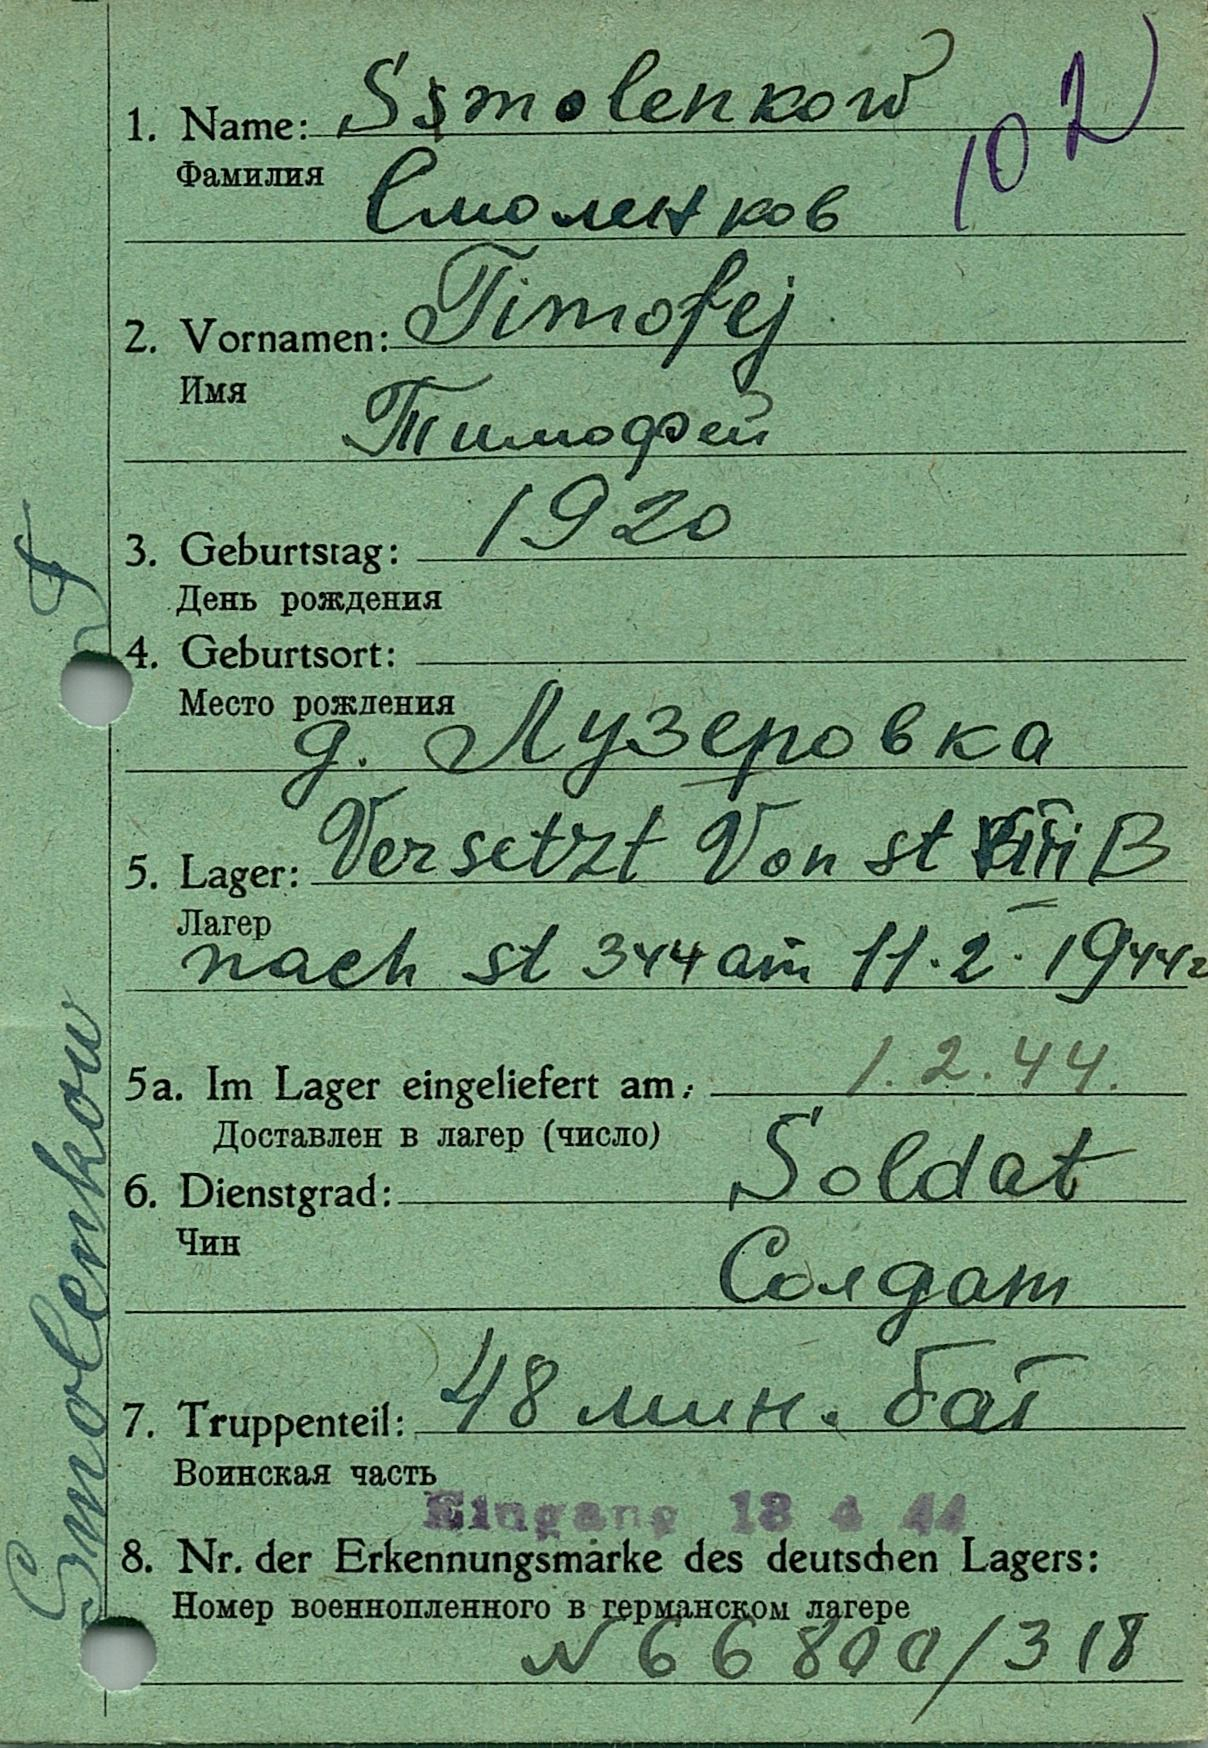 1. Name: Ssmolenkow
102
Фамилия
Смоленков
2. Vornamen: Timofej
Имя
Тимофей
3. Geburtstag: 1920
День рождения
4. Geburtsort:
Место рождения
д. Лузеровка
5. Lager: Versetzt Von st VIII B
Лагер
nach st 344 am 11.2.1944г
5a. Im Lager eingeliefert am: 1.2.44.
Доставлен в лагер (число)
6. Dienstgrad: Soldat
Чин
Солдат
7. Truppenteil: 48 мин. бат
Воинская часть
Eingang 18 4 44
8. Nr. der Erkennungsmarke des deutschen Lagers:
Номер военнопленного в германском лагере
N 66800/318
Smolenkow T